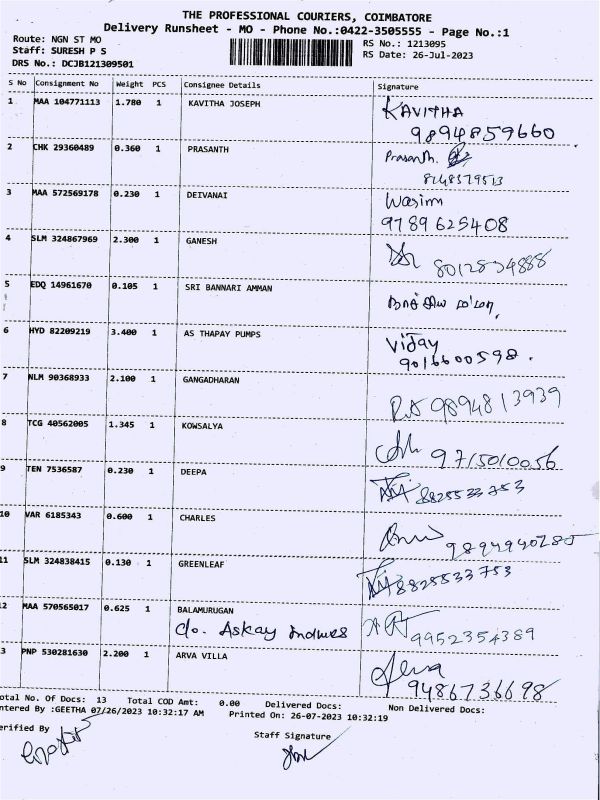 THE PROFESSIONAL COURIERS, COIMBATORE
Delivery Runsheet - MO - Phone No.:0422-3505555 - Page No.:1
Route: NGN ST MO
RS No.: 1213095
Staff: SURESH P S
RS Date: 26-Jul-2023
DRS No.: DCJB121309501
S No Consignment No Weight PCS Consignee Details Signature
1 MAA 104771113 1.780 1 KAVITHA JOSEPH KAVITHA
9894859660
2 CHK 29360489 0.360 1 PRASANTH Prasanth.
3 MAA 572569178 0.230 1 DEIVANAI Wasim
9789625408
4 SLM 324867969 2.300 1 GANESH
5 EDQ 14961670 0.105 1 SRI BANNARI AMMAN
6 HYD 82209219 3.400 1 AS THAPAY PUMPS Vijay
9016600598.
7 NLM 90368933 2.100 1 GANGADHARAN 9894813939
8 TCG 40562005 1.345 1 KOWSALYA 9715010056
9 TEN 7536587 0.230 1 DEEPA 8825533753
10 VAR 6185343 0.600 1 CHARLES
11 SLM 324838415 0.130 1 GREENLEAF 8825533753
12 MAA 570565017 0.625 1 BALAMURUGAN
C/o. Askay 9952354389
3 PNP 530281630 2.200 1 ARVA VILLA
9486736698
otal No. Of Docs: 13 Total COD Amt: 0.00 Delivered Docs: Non Delivered Docs:
ntered By :GEETHA 07/26/2023 10:32:17 AM Printed On: 26-07-2023 10:32:19
erified By
Staff Signature